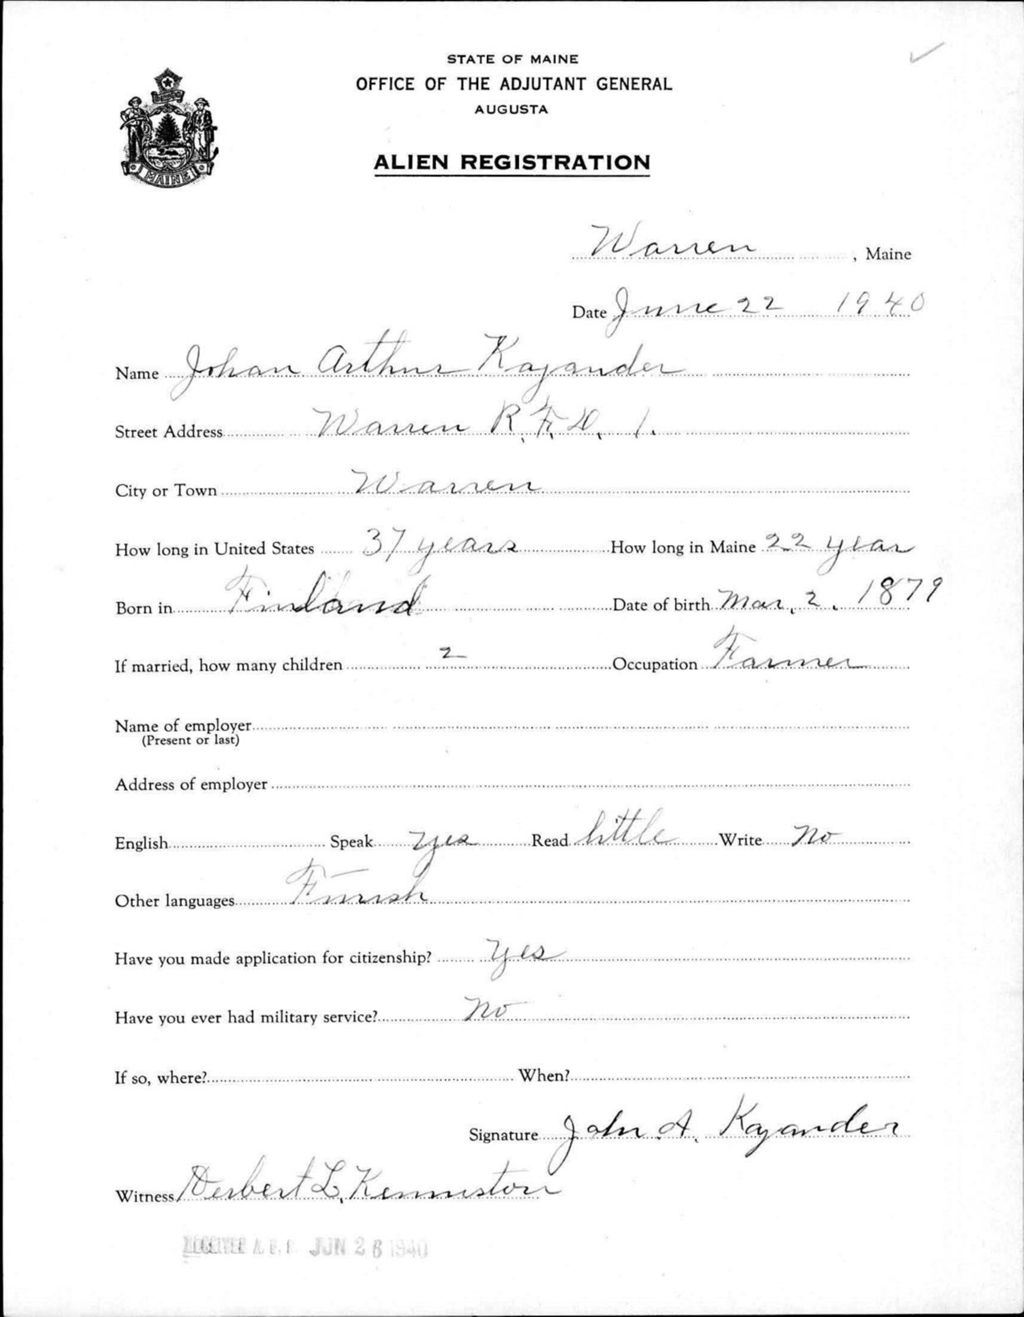 STATE OF MAINE
OFFICE OF THE ADJUTANT GENERAL
AUGUSTA
ALIEN REGISTRATION
MAINE
Warren, Maine
Date June 22 1940
Name Johan Arthur Kajander
Street Address Warren R.F.D. 1.
City or Town Warren
How long in United States 37 years How long in Maine 22 year
Born in Finland Date of birth Mar. 2. 1879
If married, how many children 2 Occupation Farmer
Name of employer
(Present or last)
Address of employer
English Speak yes Read little Write No
Other languages Finish
Have you made application for citizenship? Yes
Have you ever had military service? No
If so, where? When?
Signature John A. Kajander
Witness Herbert L. Kenniston
RECEIVED A.G.O. JUN 26 1940